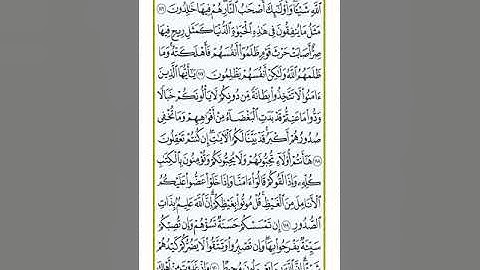 اللَّهِ شَيْئًا وَأُولَٰئِكَ أَصْحَابُ النَّارِ هُمْ فِيهَا خَالِدُونَ ١١٦
مَثَلُ مَا يُنفِقُونَ فِي هَٰذِهِ الْحَيَوٰةِ الدُّنْيَا كَمَثَلِ رِيحٍ فِيهَا
صِرٌّ أَصَابَتْ حَرْثَ قَوْمٍ ظَلَمُوا أَنفُسَهُمْ فَأَهْلَكَتْهُ وَمَا
ظَلَمَهُمُ اللَّهُ وَلَٰكِنْ أَنفُسَهُمْ يَظْلِمُونَ ١١٧ يَا أَيُّهَا الَّذِينَ
ءَامَنُوا لَا تَتَّخِذُوا بِطَانَةً مِّن دُونِكُمْ لَا يَأْلُونَكُمْ خَبَالًا
وَدُّوا مَا عَنِتُّمْ قَدْ بَدَتِ الْبَغْضَاءُ مِنْ أَفْوَاهِهِمْ وَمَا تُخْفِي
صُدُورُهُمْ أَكْبَرُ قَدْ بَيَّنَّا لَكُمُ الْآيَاتِ إِن كُنتُمْ تَعْقِلُونَ
١١٨ هَٰأَنتُمْ أُولَاءِ تُحِبُّونَهُمْ وَلَا يُحِبُّونَكُمْ وَتُؤْمِنُونَ بِالْكِتَٰبِ
كُلِّهِ وَإِذَا لَقُوكُمْ قَالُوا ءَامَنَّا وَإِذَا خَلَوْا عَضُّوا عَلَيْكُمُ
الْأَنَامِلَ مِنَ الْغَيْظِ قُلْ مُوتُوا بِغَيْظِكُمْ إِنَّ اللَّهَ عَلِيمٌ بِذَاتِ
الصُّدُورِ ١١٩ إِن تَمْسَسْكُمْ حَسَنَةٌ تَسُؤْهُمْ وَإِن تُصِبْكُمْ
سَيِّئَةٌ يَفْرَحُوا بِهَا وَإِن تَصْبِرُوا وَتَتَّقُوا لَا يَضُرُّكُمْ كَيْدُهُمْ
شَيْئًا إِنَّ اللَّهَ بِمَا يَعْمَلُونَ مُحِيطٌ ١٢٠ وَإِذْ غَدَوْتَ مِنْ أَهْلِكَ